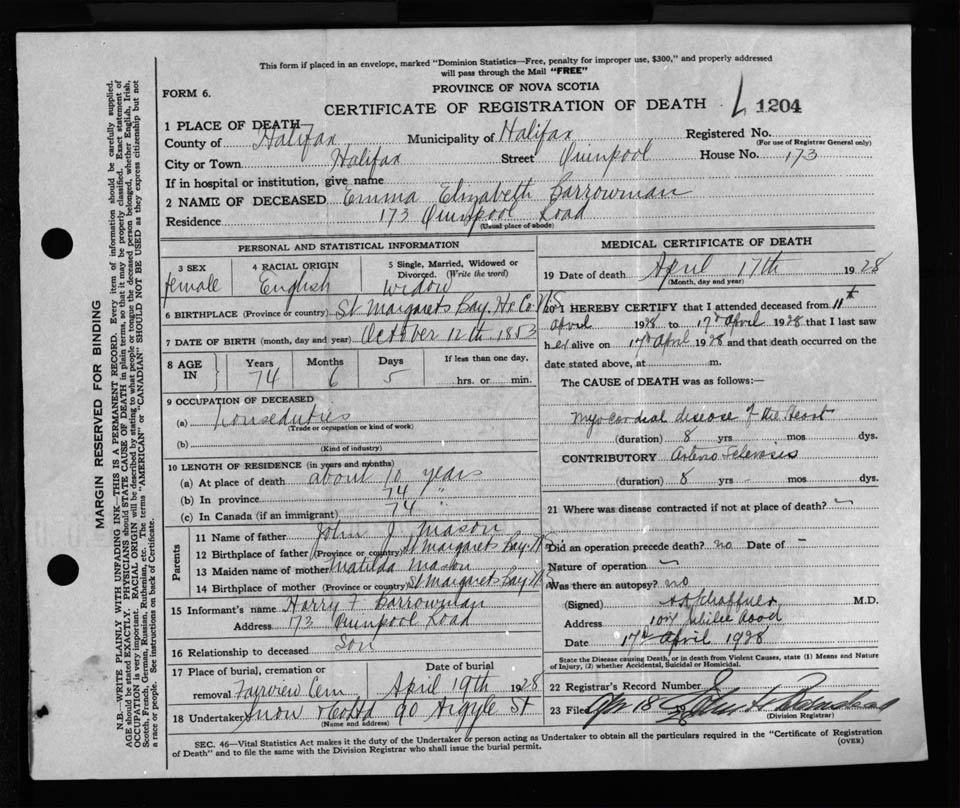 This form if placed in an envelope, marked "Dominion Statistics—Free, penalty for improper use, $300," and properly addressed
will pass through the Mail "FREE"
FORM 6.
PROVINCE OF NOVA SCOTIA
CERTIFICATE OF REGISTRATION OF DEATH
L 1204
MARGIN RESERVED FOR BINDING
N.B.—WRITE PLAINLY WITH UNFADING INK—THIS IS A PERMANENT RECORD. Every item of information should be carefully supplied.
AGE should be stated EXACTLY. PHYSICIANS should STATE CAUSE OF DEATH in plain terms, so that it may be properly classified. Exact statement of
OCCUPATION is very important. RACIAL ORIGIN will be described by stating to what people or tongue the deceased person belonged, whether English, Irish,
Scotch, French, German, Russian, Ruthenian, etc. The terms "AMERICAN" or "CANADIAN" SHOULD NOT BE USED as they express citizenship but not
a race or people. See instructions on back of Certificate.
1 PLACE OF DEATH
County of Halifax Municipality of Halifax Registered No.
(For use of Registrar General only)
City or Town Halifax Street Quinpool House No. 173
If in hospital or institution, give name
2 NAME OF DECEASED Emma Elizabeth Barrowman
Residence 173 Quinpool Road
(Usual place of abode)
PERSONAL AND STATISTICAL INFORMATION
3 SEX female
4 RACIAL ORIGIN English
5 Single, Married, Widowed or
Divorced. (Write the word)
Widow
6 BIRTHPLACE (Province or country) St Margarets Bay, Hx Co. N.S
7 DATE OF BIRTH (month, day and year) October 12th 1853
8 AGE IN
Years Months Days If less than one day,
74 6 5 hrs. or min.
9 OCCUPATION OF DECEASED
(a) houseduties
(Trade or occupation or kind of work)
(b)
(Kind of industry)
10 LENGTH OF RESIDENCE (in years and months)
(a) At place of death about 10 years
(b) In province 74 "
(c) In Canada (if an immigrant) 74 "
Parents
11 Name of father John J Mason
12 Birthplace of father (Province or country) St Margarets Bay, N.S
13 Maiden name of mother Matilda Mason
14 Birthplace of mother (Province or country) St Margarets Bay N.S
15 Informant's name Harry F Barrowman
Address 173 Quinpool Road
16 Relationship to deceased Son
17 Place of burial, cremation or
removal Fairview Cem
Date of burial
April 19th 1928
18 Undertaker Snow & Co Ltd 90 Argyle St
(Name and address)
MEDICAL CERTIFICATE OF DEATH
19 Date of death April 17th 1928
(Month, day and year)
20 I HEREBY CERTIFY that I attended deceased from 11th
April 1928 to 17th April 1928 that I last saw
her alive on 17th April 1928 and that death occurred on the
date stated above, at m.
The CAUSE of DEATH was as follows:
Myocardial disease of the Heart
(duration) 8 yrs mos dys.
CONTRIBUTORY Arterio Sclerosis
(duration) 8 yrs. mos dys.
21 Where was disease contracted if not at place of death?
Did an operation precede death? no Date of
Nature of operation
Was there an autopsy? no
(Signed) M.D.
Address Jubilee Road
Date 17th April 1928
State the Disease causing Death, or in death from Violent Causes, state (1) Means and Nature
of Injury, (2) whether Accidental, Suicidal or Homicidal.
22 Registrar's Record Number
23 Filed Apr 18
(Division Registrar)
SEC. 46—Vital Statistics Act makes it the duty of the Undertaker or person acting as Undertaker to obtain all the particulars required in the "Certificate of Registration
of Death" and to file the same with the Division Registrar who shall issue the burial permit. (OVER)